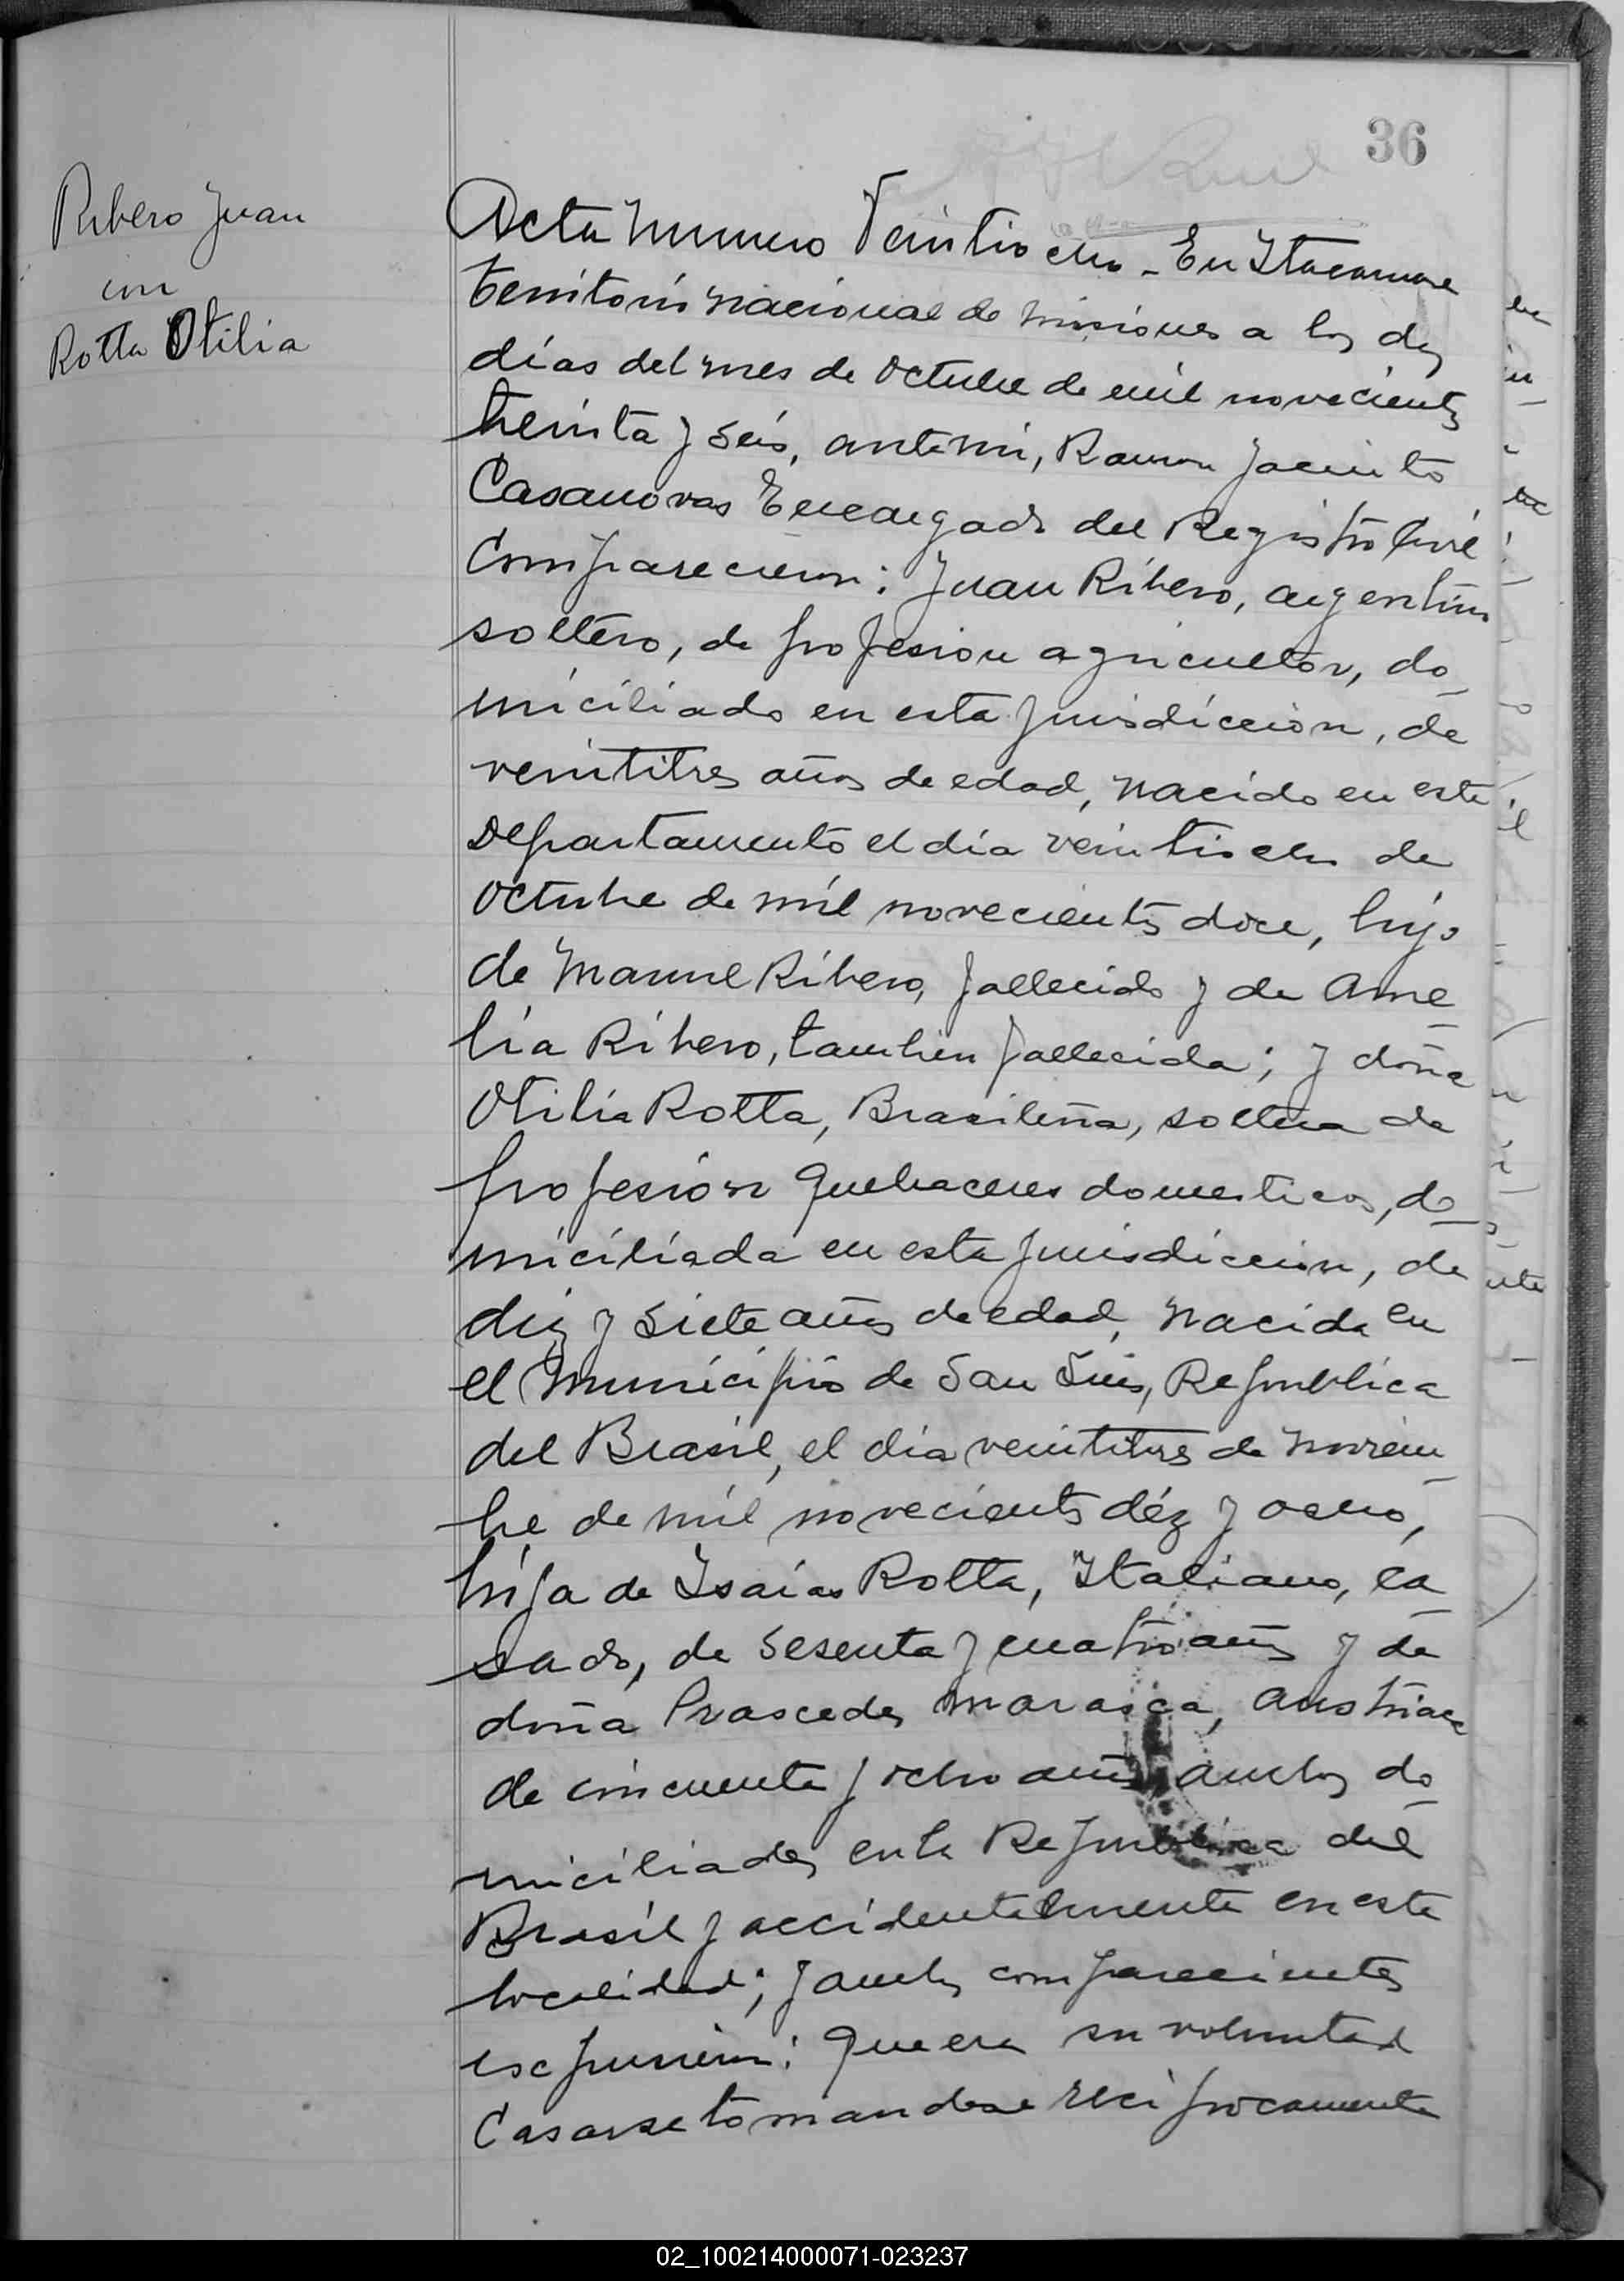 36
Ribero Juan
con
Rotta Otilia
Acta Numero Veintiocho - En Itacaruare
territorio nacional de Misiones a los diez
días del mes de Octubre de mil novecientos
treinta y seis, ante mi, Ramon Jacinto
Casanovas Encargado del Registro Civil
Comparecieron: Juan Ribero, argentino
soltero, de profesion agricultor, do_
miciliado en esta jurisdiccion, de
veintitres años de edad, nacido en este
Departamento el día veintiocho de
Octubre de mil novecientos doce, hijo
de Manuel Ribero, fallecido y de Ame_
lia Ribero, tambien fallecida; y doña
Otilia Rotta, Brasileña, soltera de
profesión quehaceres domesticos, do_
miciliada en esta jurisdiccion, de
diez y siete años de edad, nacida en
el Municipio de San Luis, Republica
del Brasil, el día veintitres de Noviem_
bre de mil novecientos diéz y ocho,
hija de Isaías Rotta, Italiano, ca_
sado, de sesenta y cuatro años y de
doña Prascedes Marasca, austriaca
de cincuenta y ocho años, ambos do_
miciliados en la Republica del
Brasil y accidentalmente en esta
localidad; y ambos comparecientes
escpusieron: Que era su voluntad
Casarse tomandose reciprocamente
02_100214000071-023237